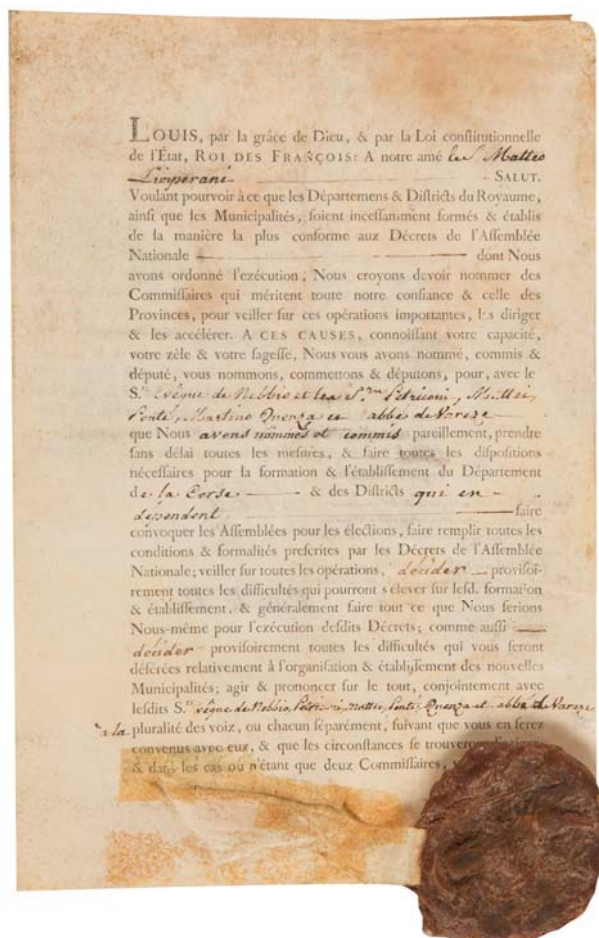 LOUIS, par la grâce de Dieu, & par la Loi conſtitutionnelle
de l'État, ROI DES FRANÇOIS: A notre amé le S. Matteo
Limperani - SALUT.
Voulant pourvoir à ce que les Départemens & Diſtricts du Royaume,
ainſi que les Municipalités, ſoient inceſſamment formés & établis
de la manière la plus conforme aux Décrets de l'Aſſemblée
Nationale dont Nous
avons ordonné l'exécution, Nous croyons devoir nommer des
Commiſſaires qui méritent toute notre confiance & celle des
Provinces, pour veiller ſur ces opérations importantes, les diriger
& les accélérer. A CES CAUSES, connoiſſant votre capacité,
votre zèle & votre ſageſſe, Nous vous avons nommé, commis &
député, vous nommons, commettons & députons, pour, avec le
S. Evêque de Nebbio et les S. Petriconi, Mattei,
Ponte, Martino Quenza et abbé de Vareze
que Nous avons nommés et commis pareillement, prendre
ſans délai toutes les meſures, & faire toutes les diſpoſitions
néceſſaires pour la formation & l'établiſſement du Département
de la Corse & des Diſtricts qui en
dépendent, faire
convoquer les Aſſemblées pour les élections, faire remplir toutes les
conditions & formalités preſcrites par les Décrets de l'Aſſemblée
Nationale; veiller ſur toutes les opérations, décider proviſoi-
rement toutes les difficultés qui pourront s'élever ſur leſd. formation
& établiſſement, & généralement faire tout ce que Nous ferions
Nous-même pour l'exécution deſdits Décrets; comme auſſi
décider proviſoirement toutes les difficultés qui vous ſeront
déférées relativement à l'organiſation & établiſſement des nouvelles
Municipalités; agir & prononcer ſur le tout, conjointement avec
leſdits S. evêque de Nebbio, Petriconi, Mattei, Ponte, Quenza et abbé de Vareze
à la pluralité des voix, ou chacun ſéparément, ſuivant que vous en ſerez
convenus avec eux, & que les circonſtances ſe trouveront
& dans les cas où n'étant que deux Commiſſaires,